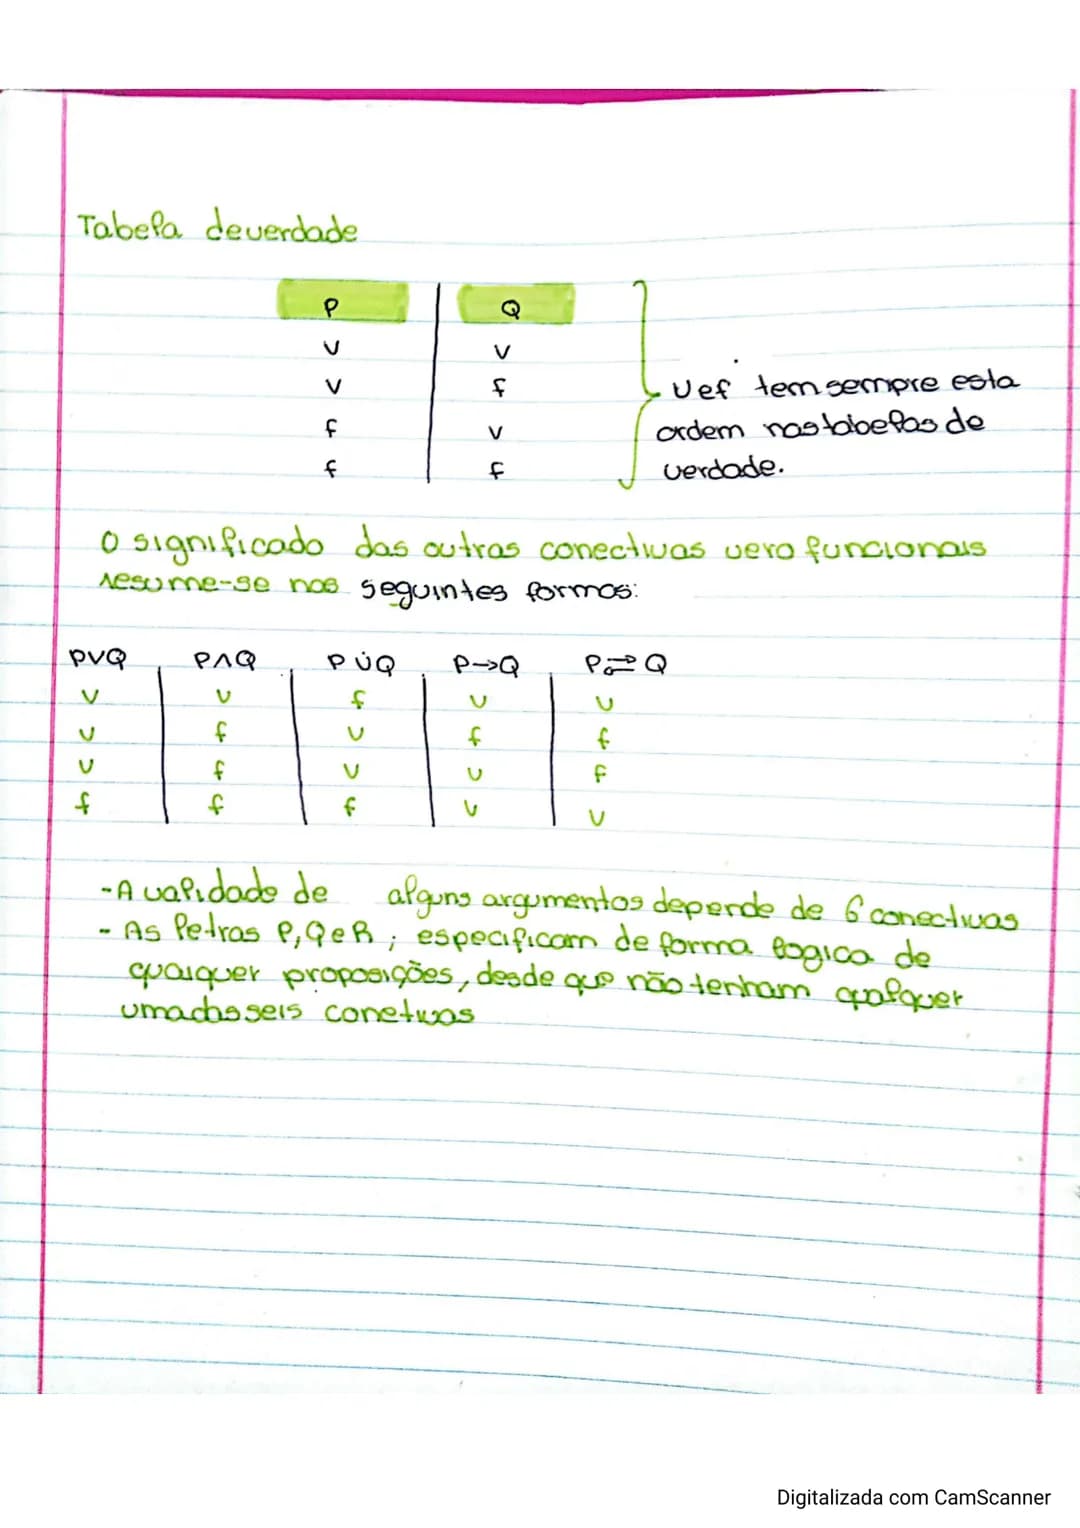 Tabela de verdade
P Q
V V
V f
f V
f f
V e f tem sempre esta
ordem nas tabelas de
verdade.
O significado das outras conectivas vero funcionais
resume-se nas seguintes formas:
P∨Q P∧Q P ∨̇ Q P→Q P⇄Q
V V f V V
V f V f f
V f V V f
f f f V V
-A validade de alguns argumentos depende de 6 conectivas
- As letras P, Q e R ; especificam de forma logica de
quaisquer proposições, desde que não tenham qualquer
uma das seis conetivas
Digitalizada com CamScanner